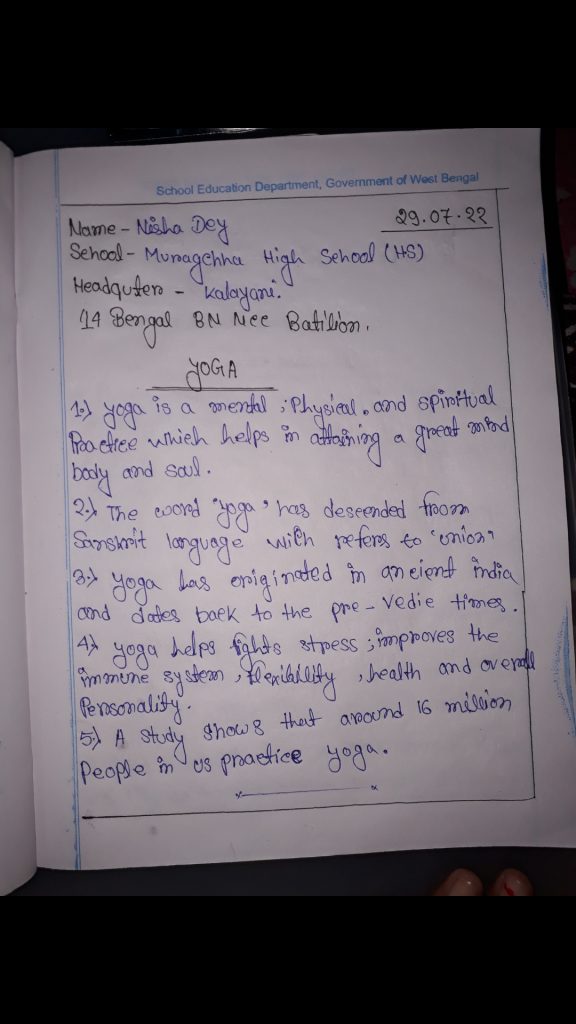 School Education Department, Government of West Bengal
29.07.22
Name - Nisha Dey
School - Muragchha High School (HS)
Headquter - Kalayani.
14 Bengal BN Ncc Batilion.
YOGA
1.) yoga is a mental, Physical, and spiritual
Practice which helps in attaining a great mind
body and soul.
2.) The word "yoga" has descended from
Sanskrit language with refers to "union"
3.) yoga has originated in ancient india
and dates back to the pre-vedic times.
4.) yoga helps fights stress, improves the
immune system, flexibility, health and overall
Personality.
5.) A study shows that around 16 million
People in us practice yoga.